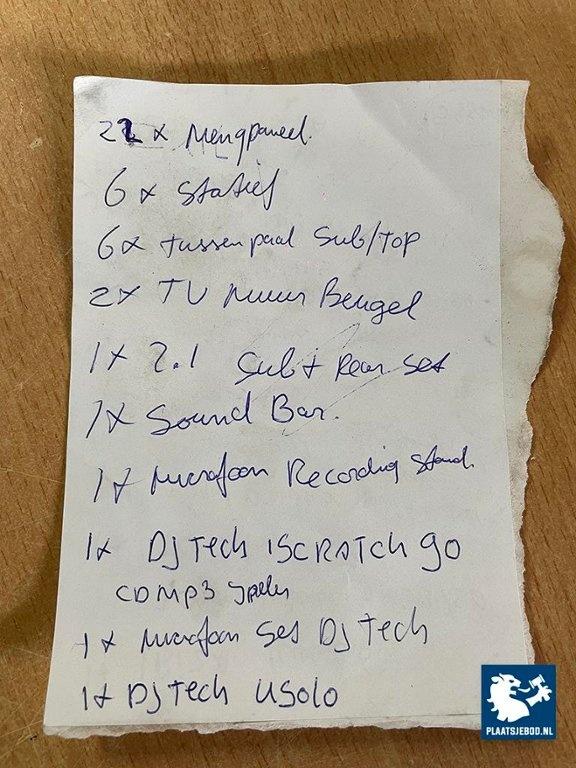 22 x Mengpaneel.
6 x Statief
6x tussenpaal Sub/Top
2x TV Muur Beugel
1x 2.1 Sub + Rear Set
1x Sound Bar.
1x Microfoon Recording Stand.
1x DJ Tech iSCRATCH 90
CD MP3 Speler
1x Microfoon Set DJ Tech
1x DJ Tech USolo
PLAATSJEBOD.NL